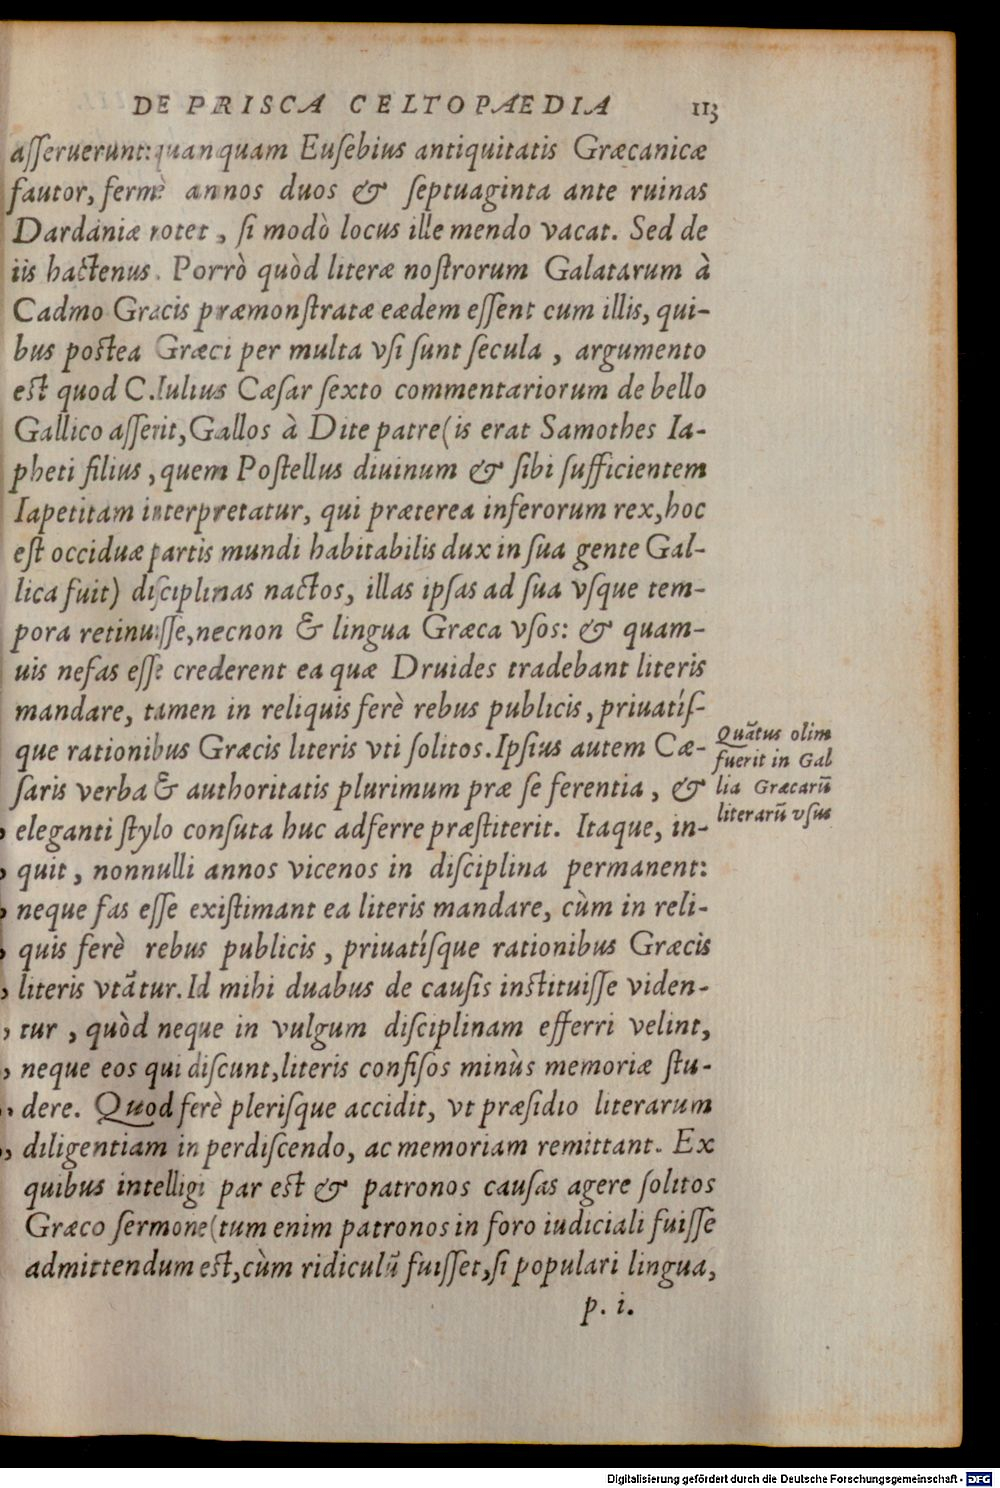 DE PRISCA CELTOPAEDIA 113
aſſeruerunt: quanquam Euſebius antiquitatis Græcanicæ
fautor, fermè annos duos & ſeptuaginta ante ruinas
Dardaniæ rotet, ſi modò locus ille mendo vacat. Sed de
iis hactenus. Porrò quòd literæ noſtrorum Galatarum à
Cadmo Græcis præmonſtratæ eædem eſſent cum illis, qui-
bus poſtea Græci per multa vſi ſunt ſecula, argumento
eſt quod C. Iulius Cæſar ſexto commentariorum de bello
Gallico aſſerit, Gallos à Dite patre (is erat Samothes Ia-
pheti filius, quem Poſtellus diuinum & ſibi ſufficientem
Iapetitam interpretatur, qui præterea inferorum rex, hoc
eſt occiduæ partis mundi habitabilis dux in ſua gente Gal-
lica fuit) diſciplinas nactos, illas ipſas ad ſua vſque tem-
pora retinuiſſe, necnon & lingua Græca vſos: & quam-
uis nefas eſſe crederent ea quæ Druides tradebant literis
mandare, tamen in reliquis ferè rebus publicis, priuatíſ-
que rationibus Græcis literis vti ſolitos. Ipſius autem Cæ-
ſaris verba & authoritatis plurimum præ ſe ferentia, &
eleganti ſtylo conſuta huc adferre præſtiterit. Itaque, in-
quit, nonnulli annos vicenos in diſciplina permanent:
neque fas eſſe exiſtimant ea literis mandare, cùm in reli-
quis ferè rebus publicis, priuatíſque rationibus Græcis
literis vtātur. Id mihi duabus de cauſis inſtituiſſe viden-
tur, quòd neque in vulgum diſciplinam efferri velint,
neque eos qui diſcunt, literis confiſos minùs memoriæ ſtu-
dere. Quod ferè pleriſque accidit, vt præſidio literarum
diligentiam in perdiſcendo, ac memoriam remittant. Ex
quibus intelligi par eſt & patronos cauſas agere ſolitos
Græco ſermone (tum enim patronos in foro iudiciali fuiſſe
admittendum eſt, cùm ridiculū fuiſſet, ſi populari lingua,
p. i.
Quātus olim
fuerit in Gal
lia Græcarū
literarū vſus
Digitalisierung gefördert durch die Deutsche Forschungsgemeinschaft - DFG